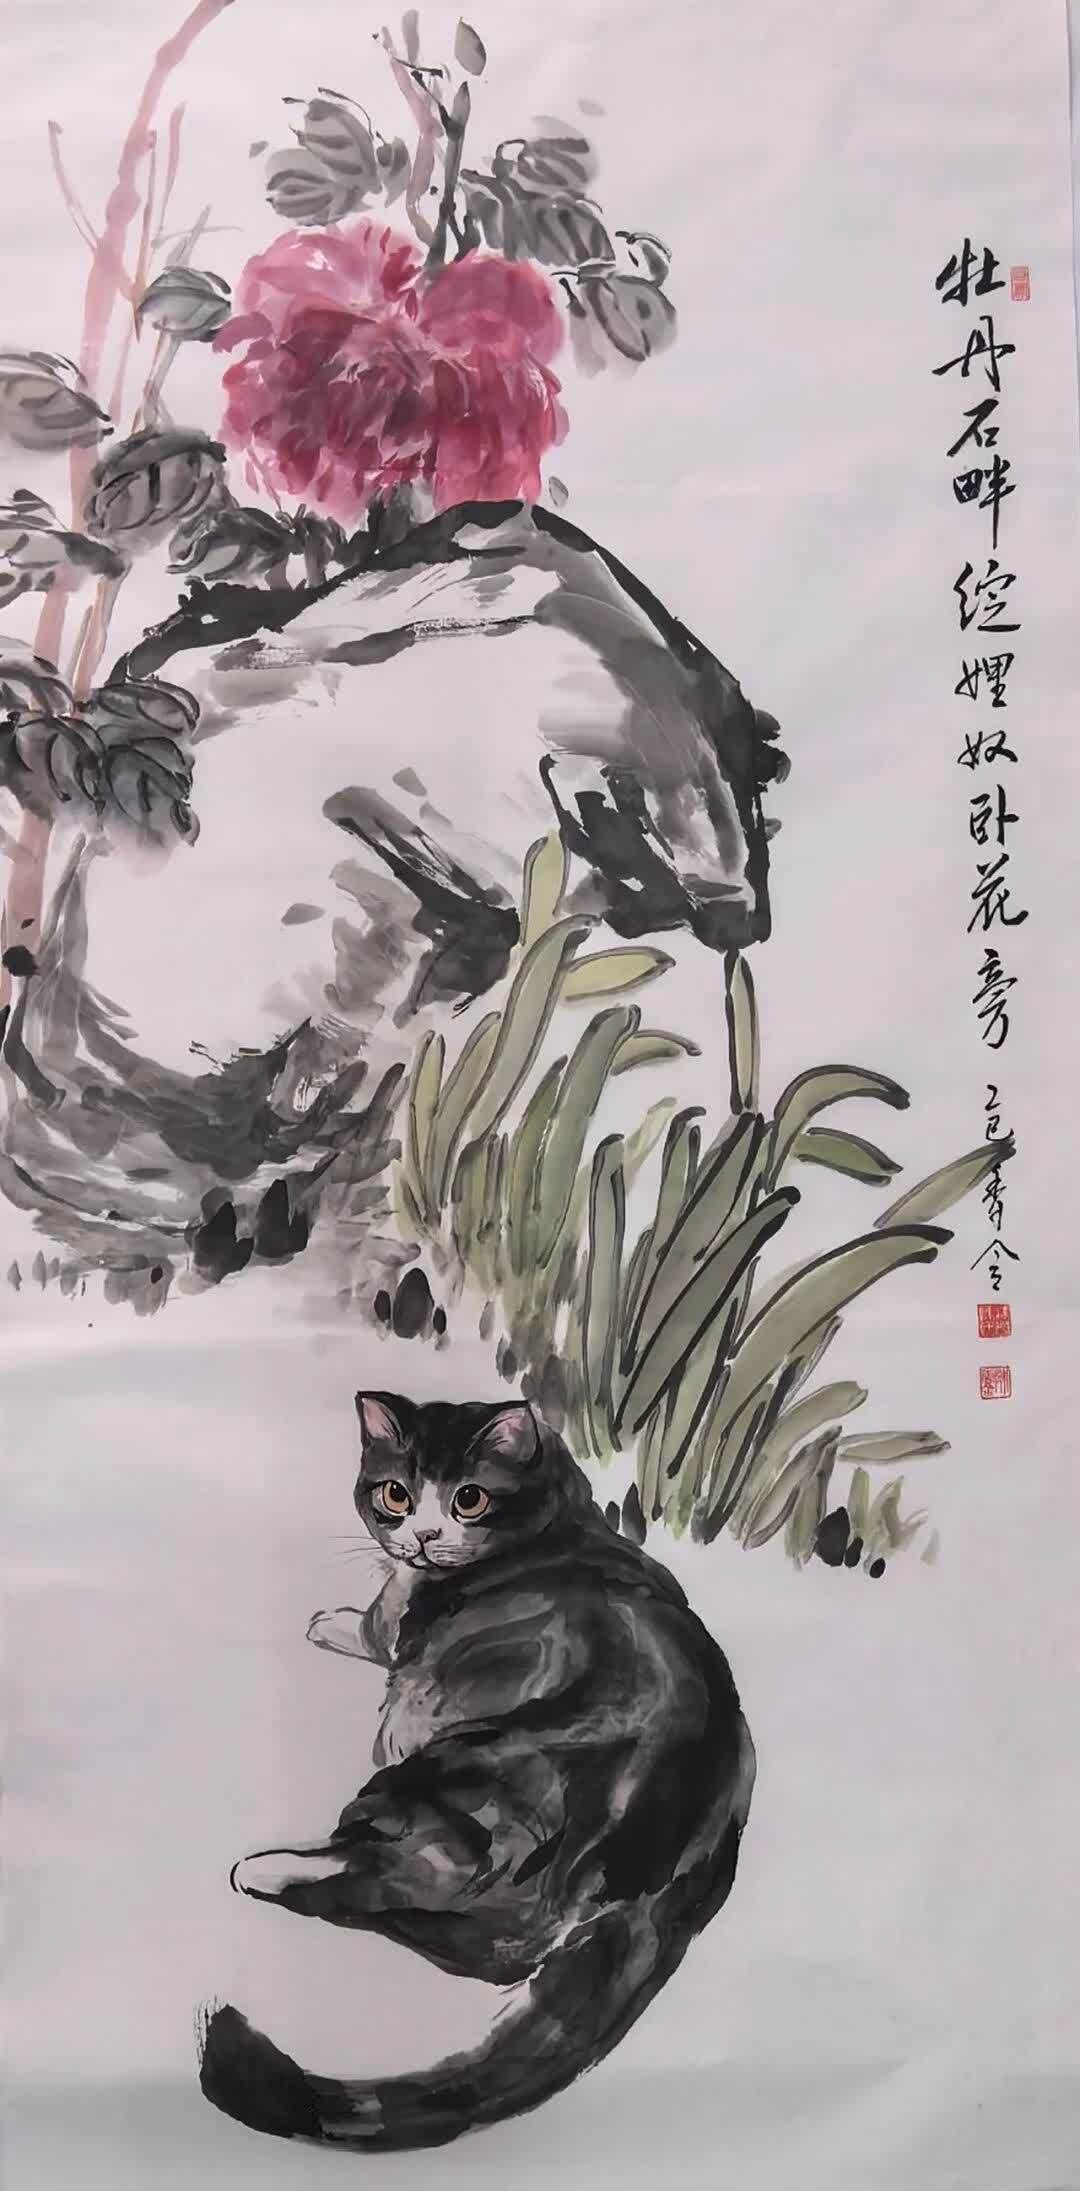 牡丹石畔绽娌奴卧花旁 乙巳 秀令